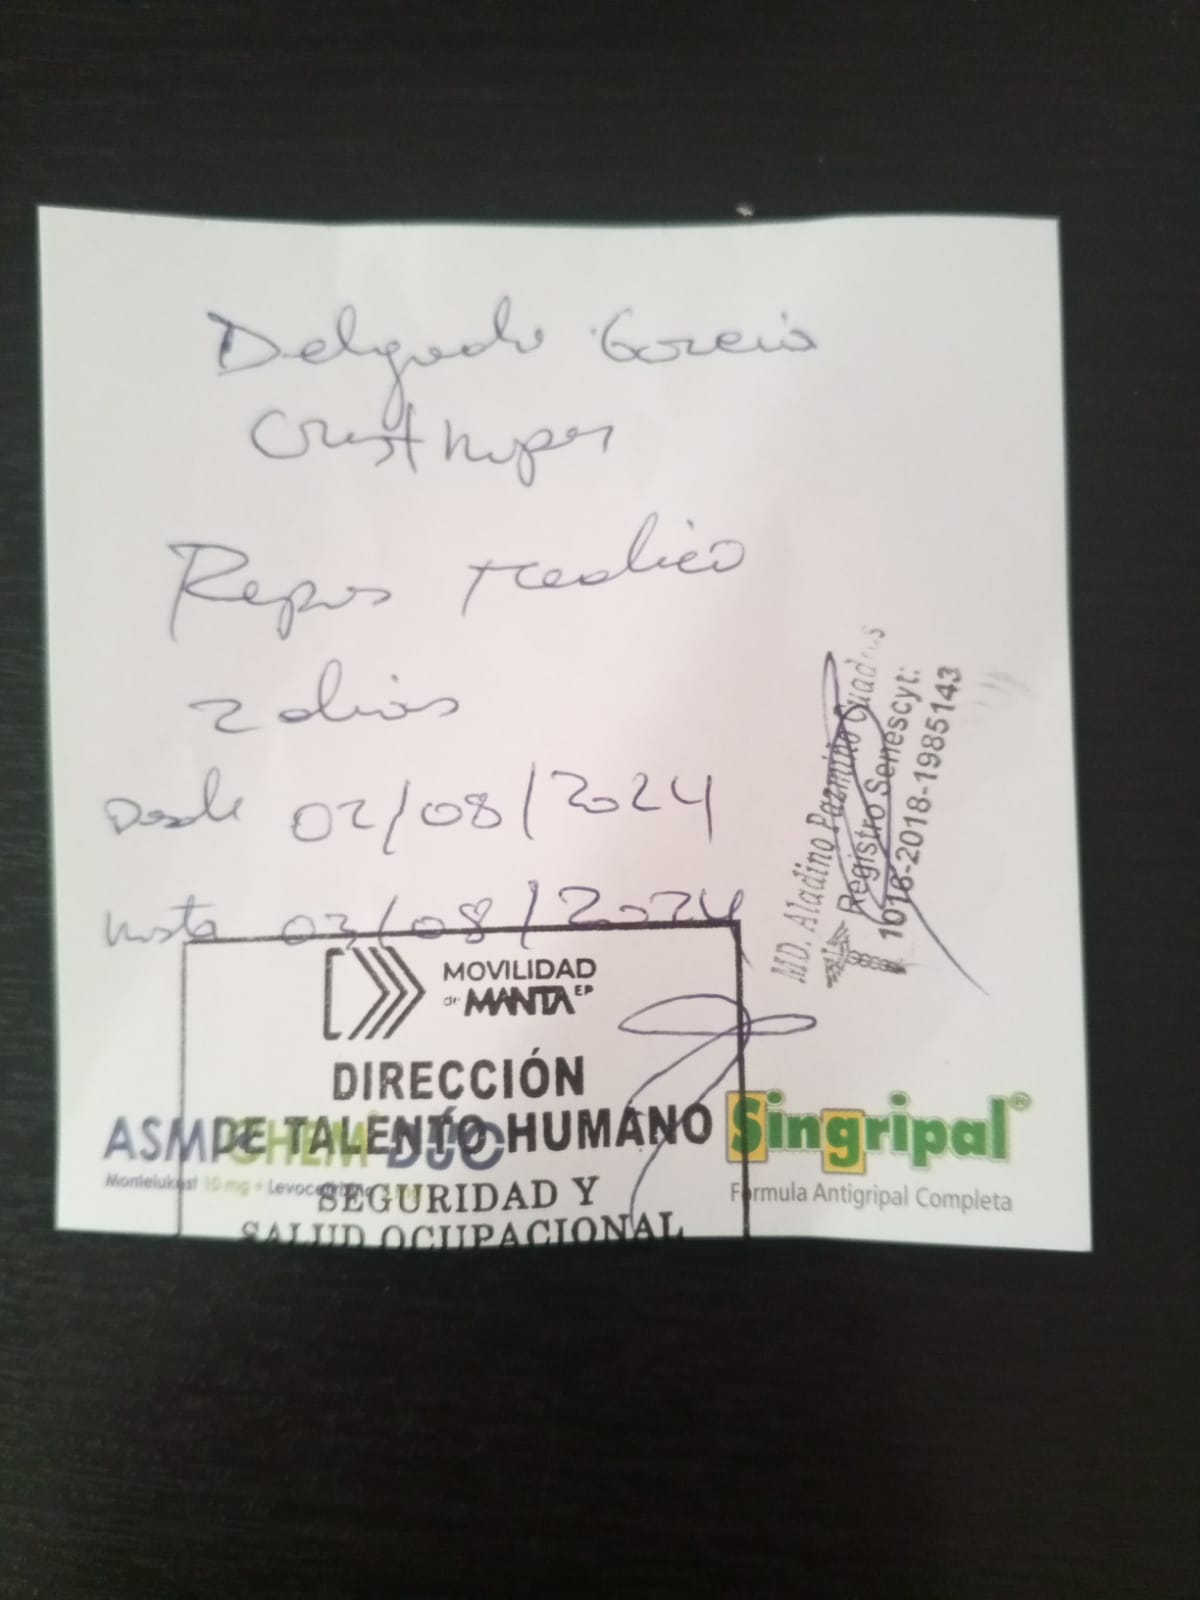 Delgado Garcia
Cristhoper
Reposo Medico
2 dias
Desde 02/08/2024
hasta 03/08/2024
MD. Aladino Pazmiño Cuadros
Registro Senescyt:
1016-2018-1985143
MOVILIDAD
de MANTA EP
DIRECCIÓN
DE TALENTO HUMANO
SEGURIDAD Y
SALUD OCUPACIONAL
ASMOCHEM DUO
Montelukast 10 mg + Levocetirizina
Singripal®
Fórmula Antigripal Completa